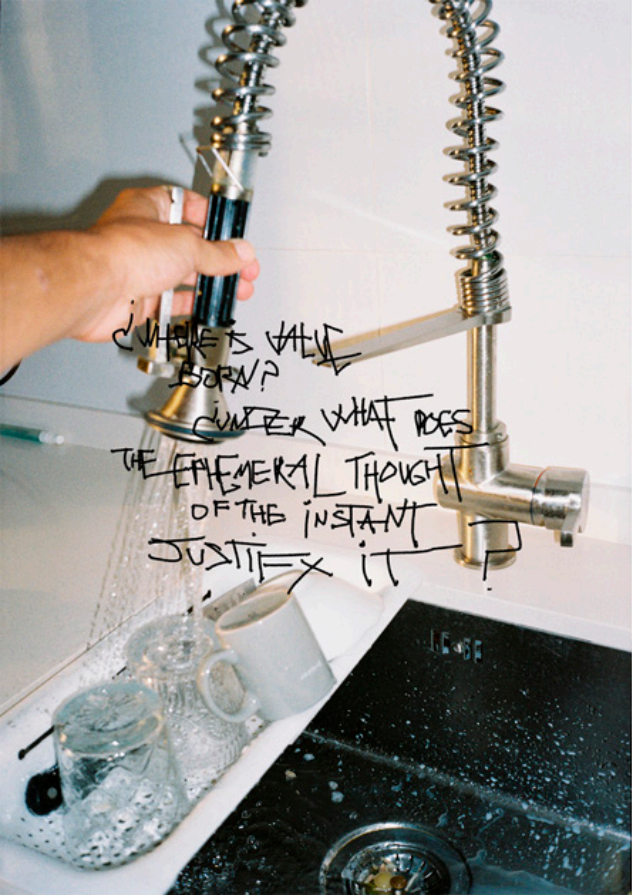 ¿WHERE IS VALUE
BORN?
¿UNDER WHAT DOES
THE EPHEMERAL THOUGHT
OF THE INSTANT
JUSTIFY IT?